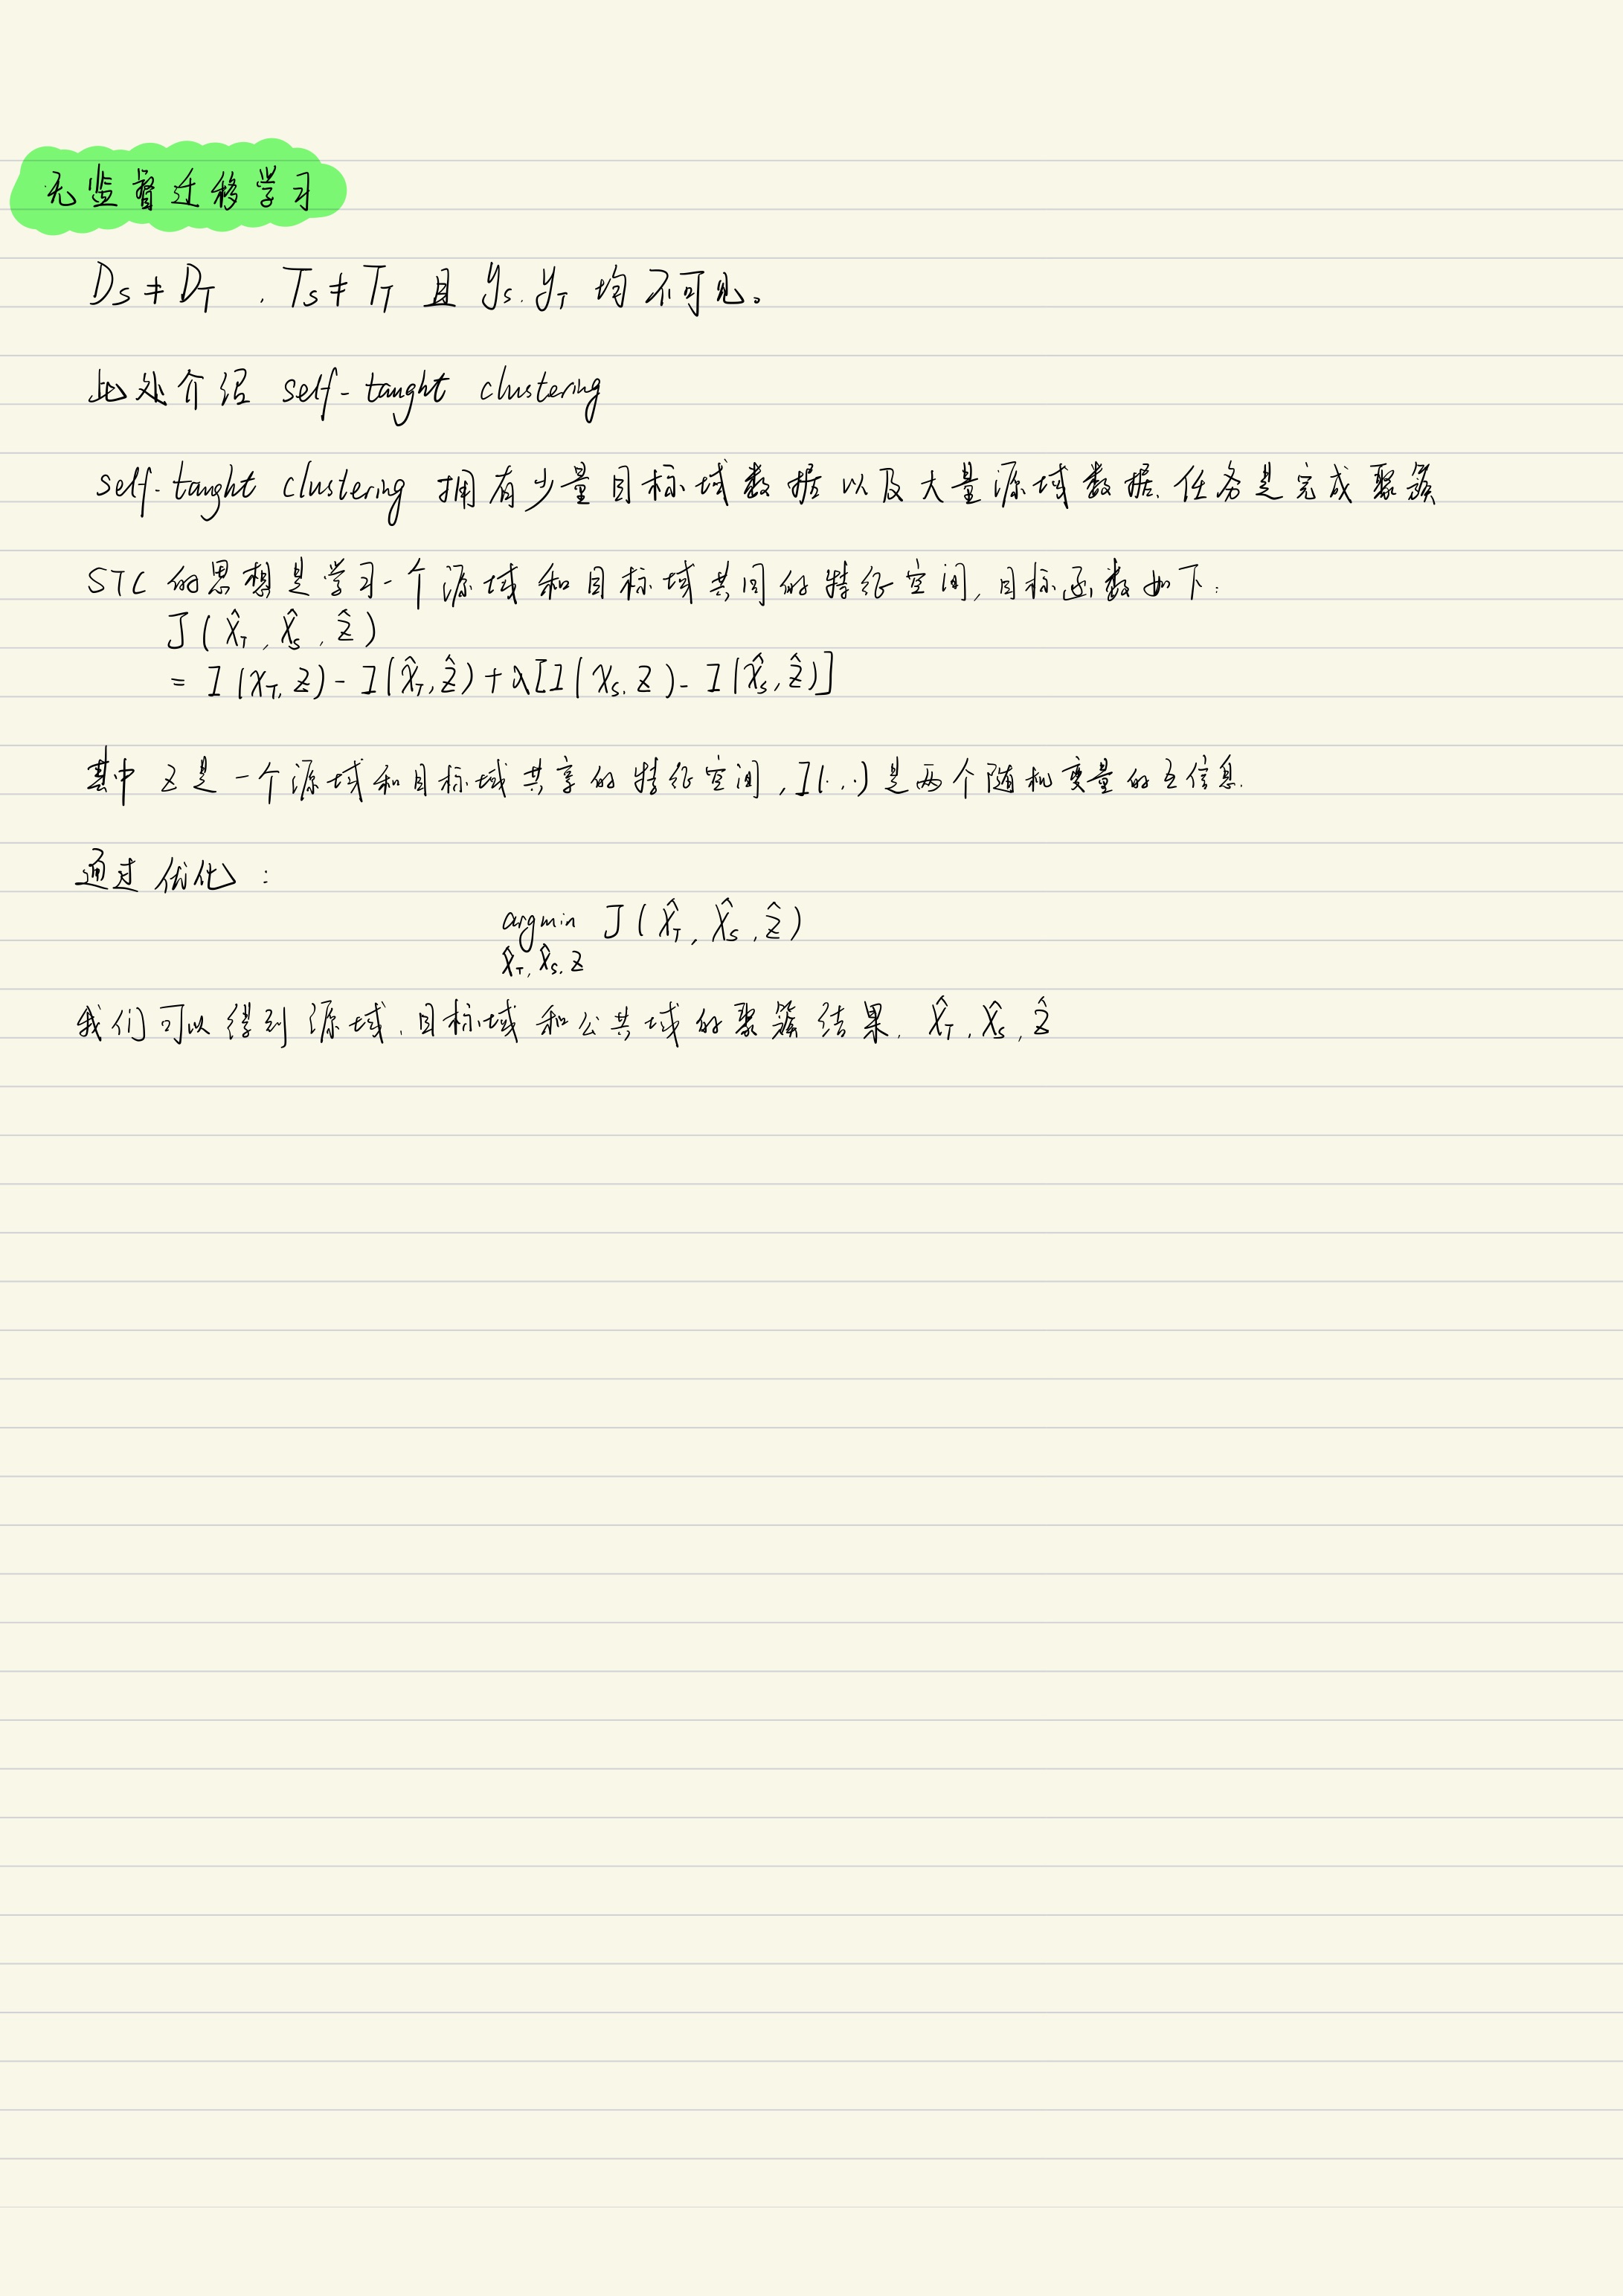 无监督迁移学习
D_S ≠ D_T , T_S ≠ T_T 且 y_S. y_T 均不可见。
此处介绍 self-taught clustering
self-taught clustering 拥有少量目标域数据以及大量源域数据. 任务是完成聚簇
STC 的思想是学习一个源域和目标域共同的特征空间, 目标函数如下:
J(X̂_T, X̂_S, ẑ)
= I(X_T, Z) - I(X̂_T, ẑ) + λ[I(X_S, Z) - I(X̂_S, ẑ)]
其中 Z 是一个源域和目标域共享的特征空间, I(·,·) 是两个随机变量的互信息.
通过优化:
argmin J(X̂_T, X̂_S, ẑ)
X̂_T, X̂_S, Z
我们可以得到源域. 目标域和公共域的聚簇结果. X̂_T, X̂_S, ẑ